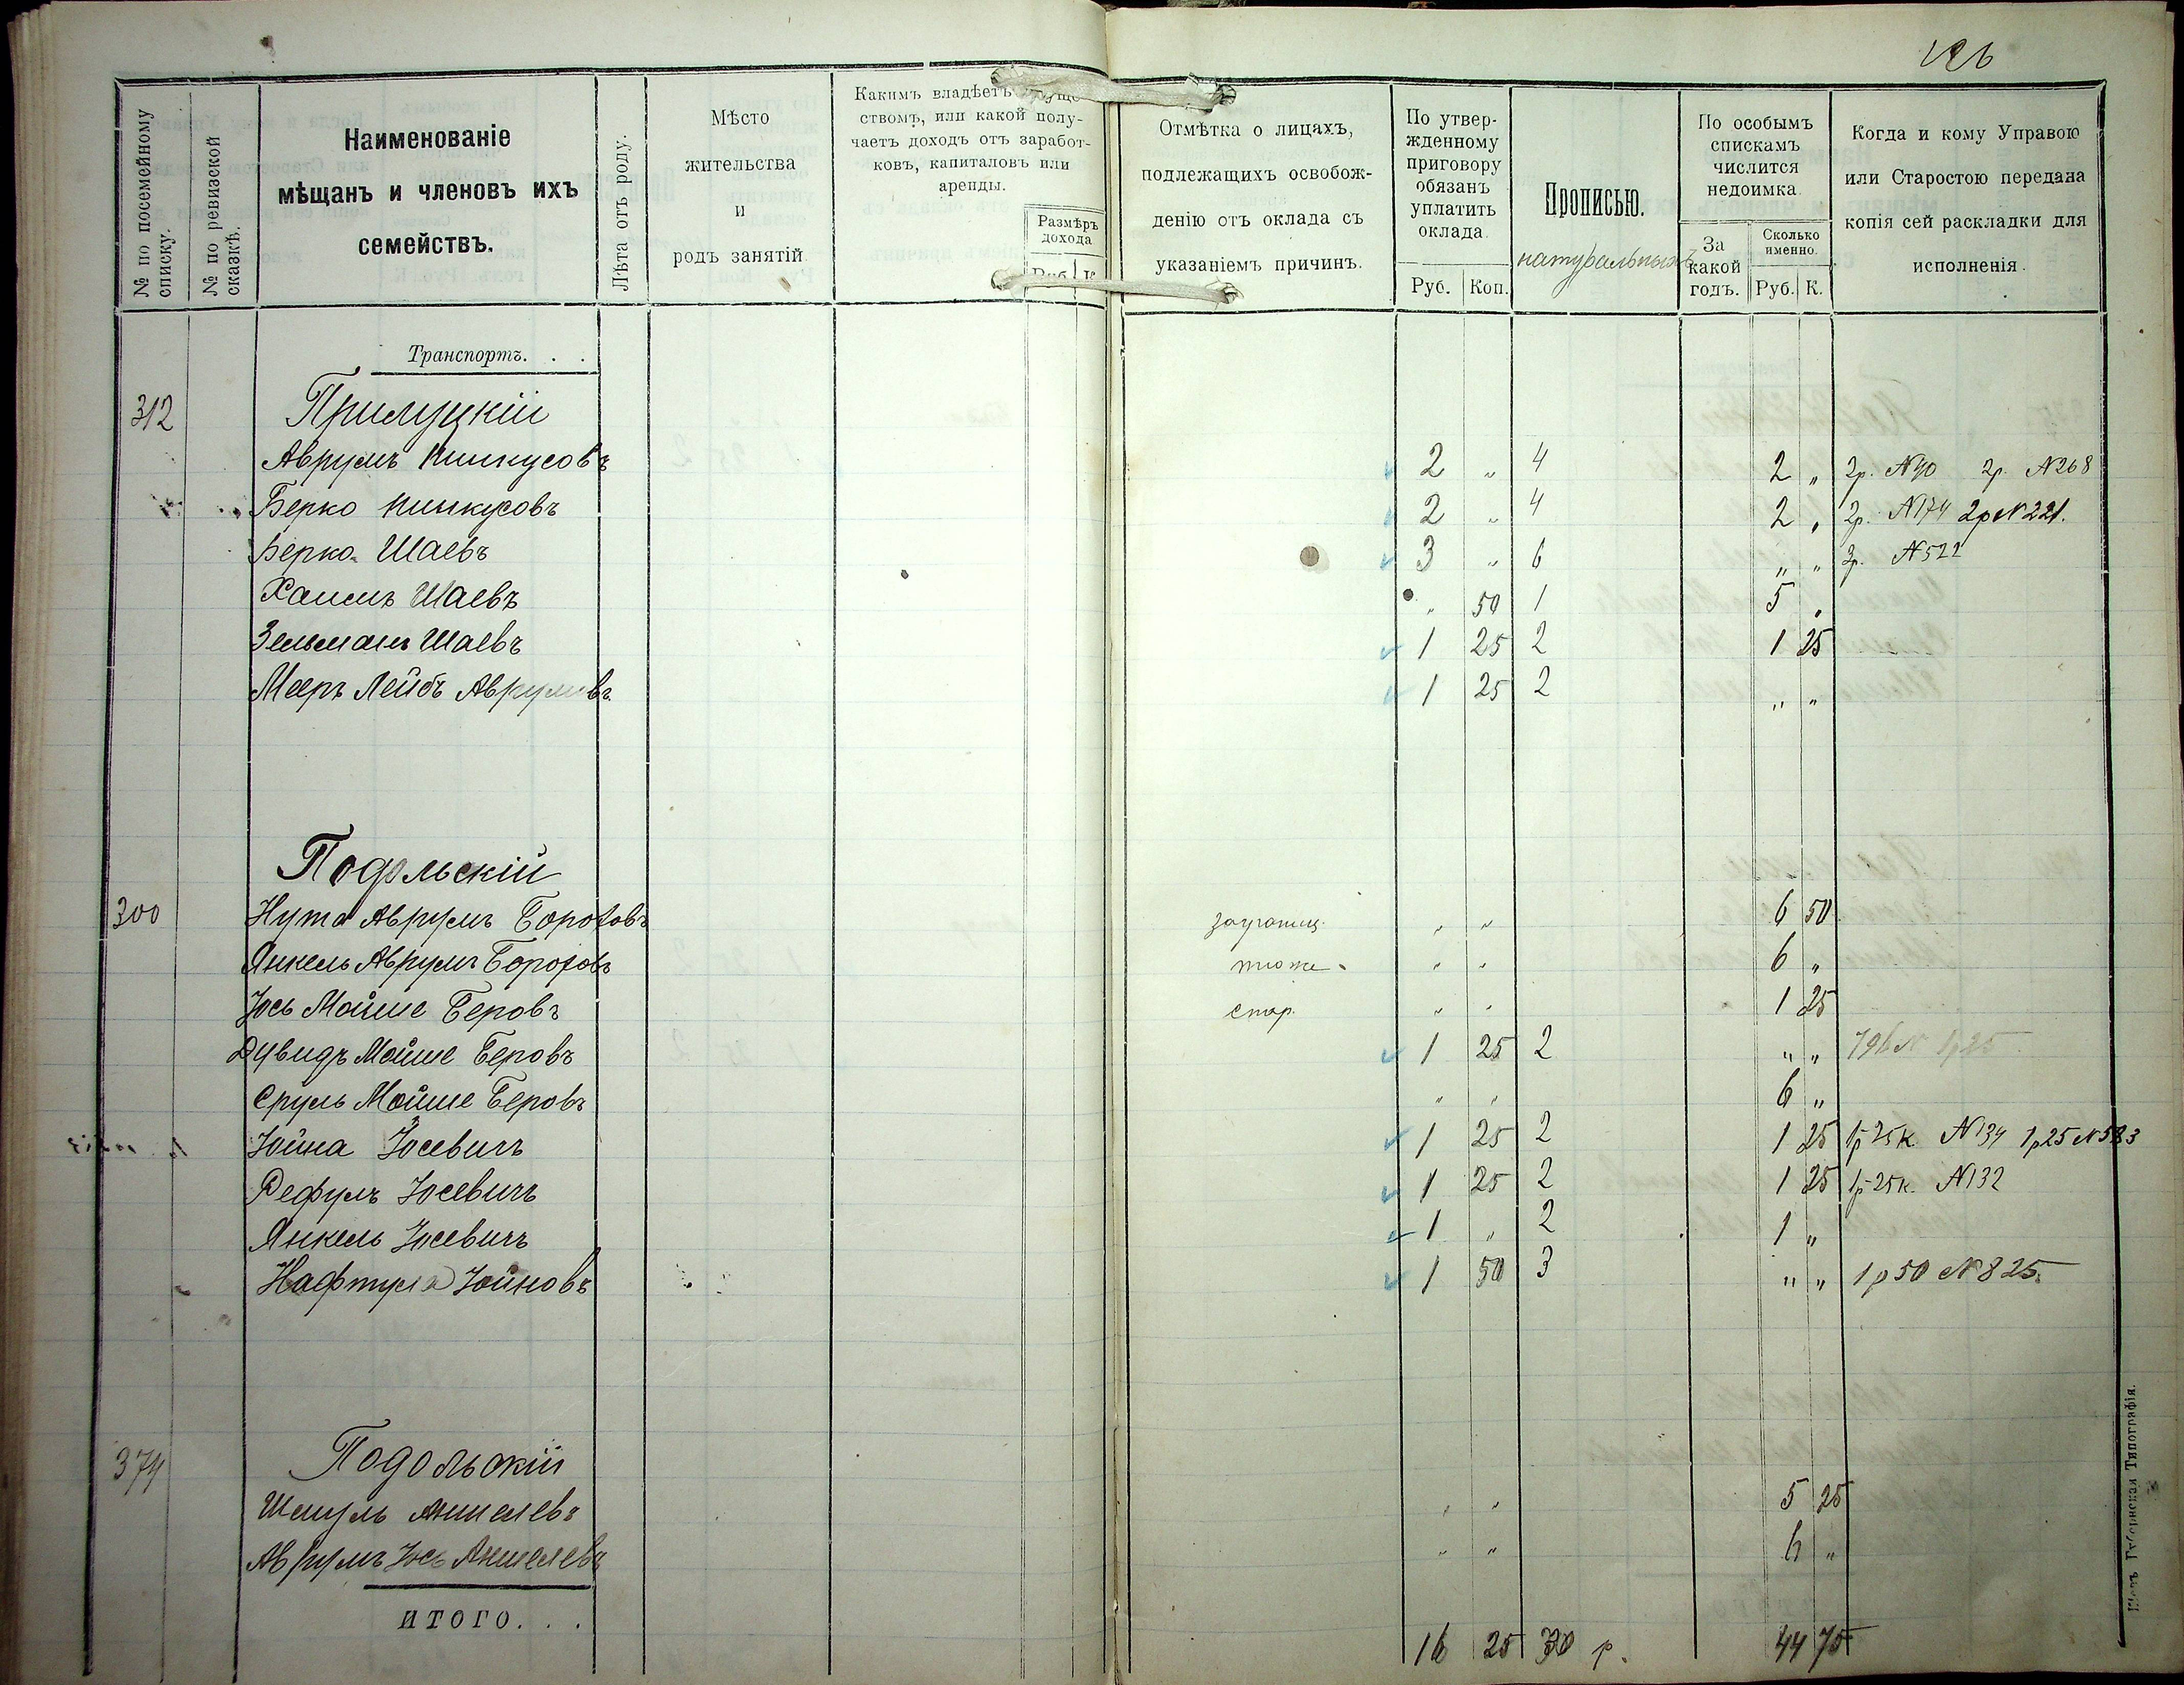 № по посемейному списку.
№ по ревизской сказкѣ.
Наименованіе
мѣщанъ и членовъ ихъ
семействъ.
Лѣта отъ роду.
Мѣсто
жительства
и
родъ занятій.
Какимъ владѣетъ
ствомъ, или какой полу-
чаетъ доходъ отъ заработ-
ковъ, капиталовъ или
аренды.
Размѣръ
дохода
Руб. К
Отмѣтка о лицахъ,
подлежащихъ освобож-
денію отъ оклада съ
указаніемъ причинъ.
По утвер-
жденному
приговору
обязанъ
уплатить
оклада.
Руб. Коп.
Прописью.
натуральныхъ
По особымъ
спискамъ
числится
недоимка.
За
какой
годъ.
Сколько
именно.
Руб. К.
Когда и кому Управою
или Старостою передана
копія сей раскладки для
исполненія.
Транспортъ. . .
312 Прилуцкій
Аврумъ Пинкусовъ 2 " 4 2 " 2р. №90 2р. №268
Берко Пинкусовъ 2 " 4 2 " 2р. №174 2р №221.
Берко Шаевъ 3 " 6 " " 3р. №522
Хаимъ Шаевъ " 50 1 5 "
Зельманъ Шаевъ 1 25 2 1 25
Мееръ Лейбъ Аврумовъ 1 25 2 " "
Подольскій
300 Нута Аврумъ Бороховъ заграниц. " " 6 50
Янкель Аврумъ Бороховъ тоже " " 6 "
Іось Мойше Беровъ стар. " " 1 25
Дувидъ Мойше Беровъ 1 25 2 " " 796 № 1р25
Сруль Мойше Беровъ " " 6 "
Іойна Іосевичъ 1 25 2 1 25 1р 25к. №134 1р25 №583
Рефулъ Іосевичъ 1 25 2 1 25 1р 25к. №132
Янкель Іосевичъ 1 " 2 1 "
Нафтула Іойновъ 1 50 3 " " 1р50 №825.
374 Подольскій
Шмуль Аншелевъ " " 5 25
Аврумъ Іось Аншелевъ " " 6 "
ИТОГО. . . 16 25 30 р. 44 75
Губернская Типографія.